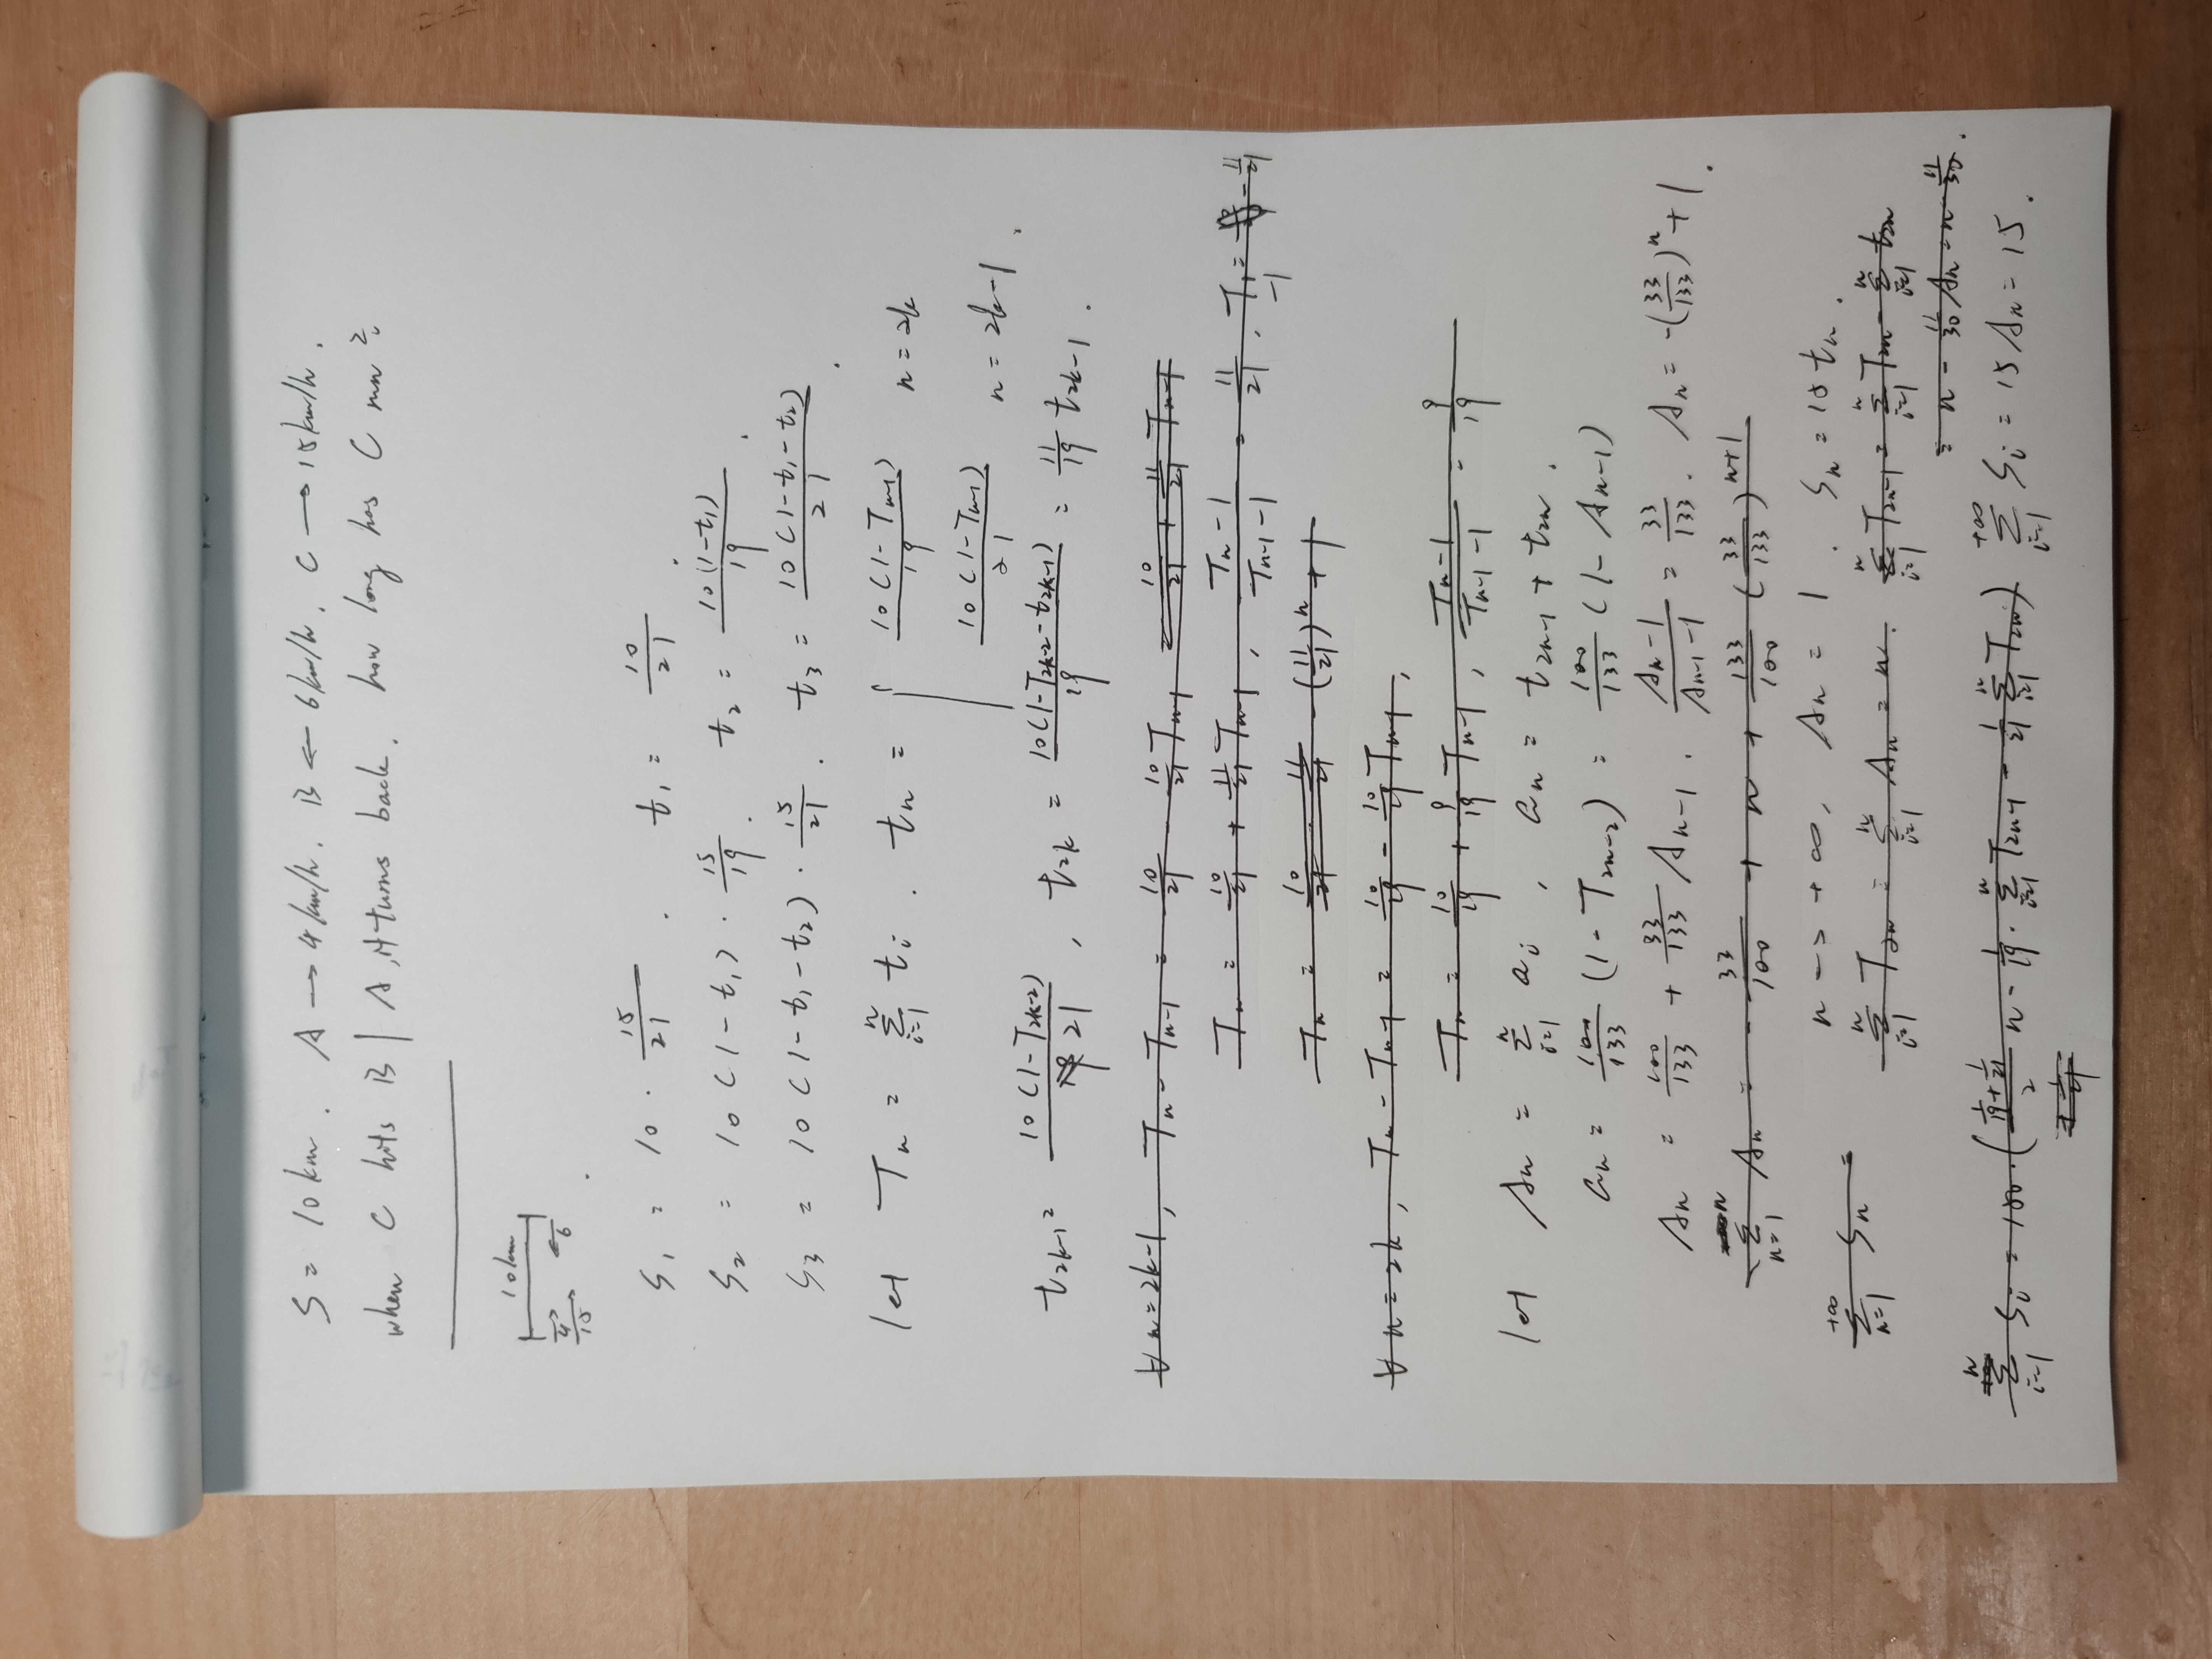 S = 10 km. A → 4 km/h. B ← 6 km/h. C → 15 km/h.
when C hits B | A, it turns back. how long has C run?
10 km
4 6
15
S₁ = 10 · 15/21. t₁ = 10/21.
S₂ = 10 (1 - t₁) · 15/19. t₂ = 10(1-t₁)/19.
S₃ = 10 (1 - t₁ - t₂) · 15/21. t₃ = 10(1-t₁-t₂)/21.
let Tₙ = Σ_{i=1}^{n} tᵢ. tₙ = { 10(1-Tₙ₋₁)/19 n = 2k
10(1-Tₙ₋₁)/21 n = 2k-1.
t_{2k-1} = 10(1-T_{2k-2})/21, t_{2k} = 10(1-T_{2k-2}-t_{2k-1})/19 = 11/19 t_{2k-1}.
∀ n = 2k-1, Tₙ - Tₙ₋₁ = 10/21 - 10/21 Tₙ₋₁ = 10/21 + 11/21 Tₙ₋₁
Tₙ = 10/21 + 11/21 Tₙ₋₁, (Tₙ-1)/(Tₙ₋₁-1) = 11/21. T₁-1 = -11/21
Tₙ = 10/21 · 11/21 -(11/21)ⁿ + 1
∀ n = 2k, Tₙ - Tₙ₋₁ = 10/19 - 10/19 Tₙ₋₁,
Tₙ = 10/19 + 9/19 Tₙ₋₁, (Tₙ-1)/(Tₙ₋₁-1) = 9/19
let Aₙ = Σ_{i=1}^{n} aᵢ, aₙ = t_{2n-1} + t_{2n}.
aₙ = 100/133 (1 - T_{2n-2}) = 100/133 (1 - Aₙ₋₁)
Aₙ = 100/133 + 33/133 Aₙ₋₁. (Aₙ-1)/(Aₙ₋₁-1) = 33/133. Aₙ = -(33/133)ⁿ + 1.
Σ_{n=1}^{n} Aₙ = - 33/100 + n + 133/100 (33/133)^{n+1}
n -> +∞, Aₙ = 1. Sₙ = 15 tₙ.
Σ_{n=1}^{+∞} Sₙ =
Σ_{i=1}^{n} T_{2n} = Σ_{i=1}^{n} Aₙ = n. Σ_{i=1}^{n} T_{2n-1} = Σ_{i=1}^{n} T_{2n} - Σ_{i=1}^{n} t_{2n}
= n - 11/30 Aₙ = n - 11/30.
Σ_{i=1}^{n} Sᵢ = 150 · ((1/19 + 1/21)/2 n - 1/19 · Σ_{i=1}^{n} T_{2n-1} - 1/21 Σ_{i=1}^{n} T_{2n}) Σ_{i=1}^{+∞} Sᵢ = 15 Aₙ = 15.
+ 1/21